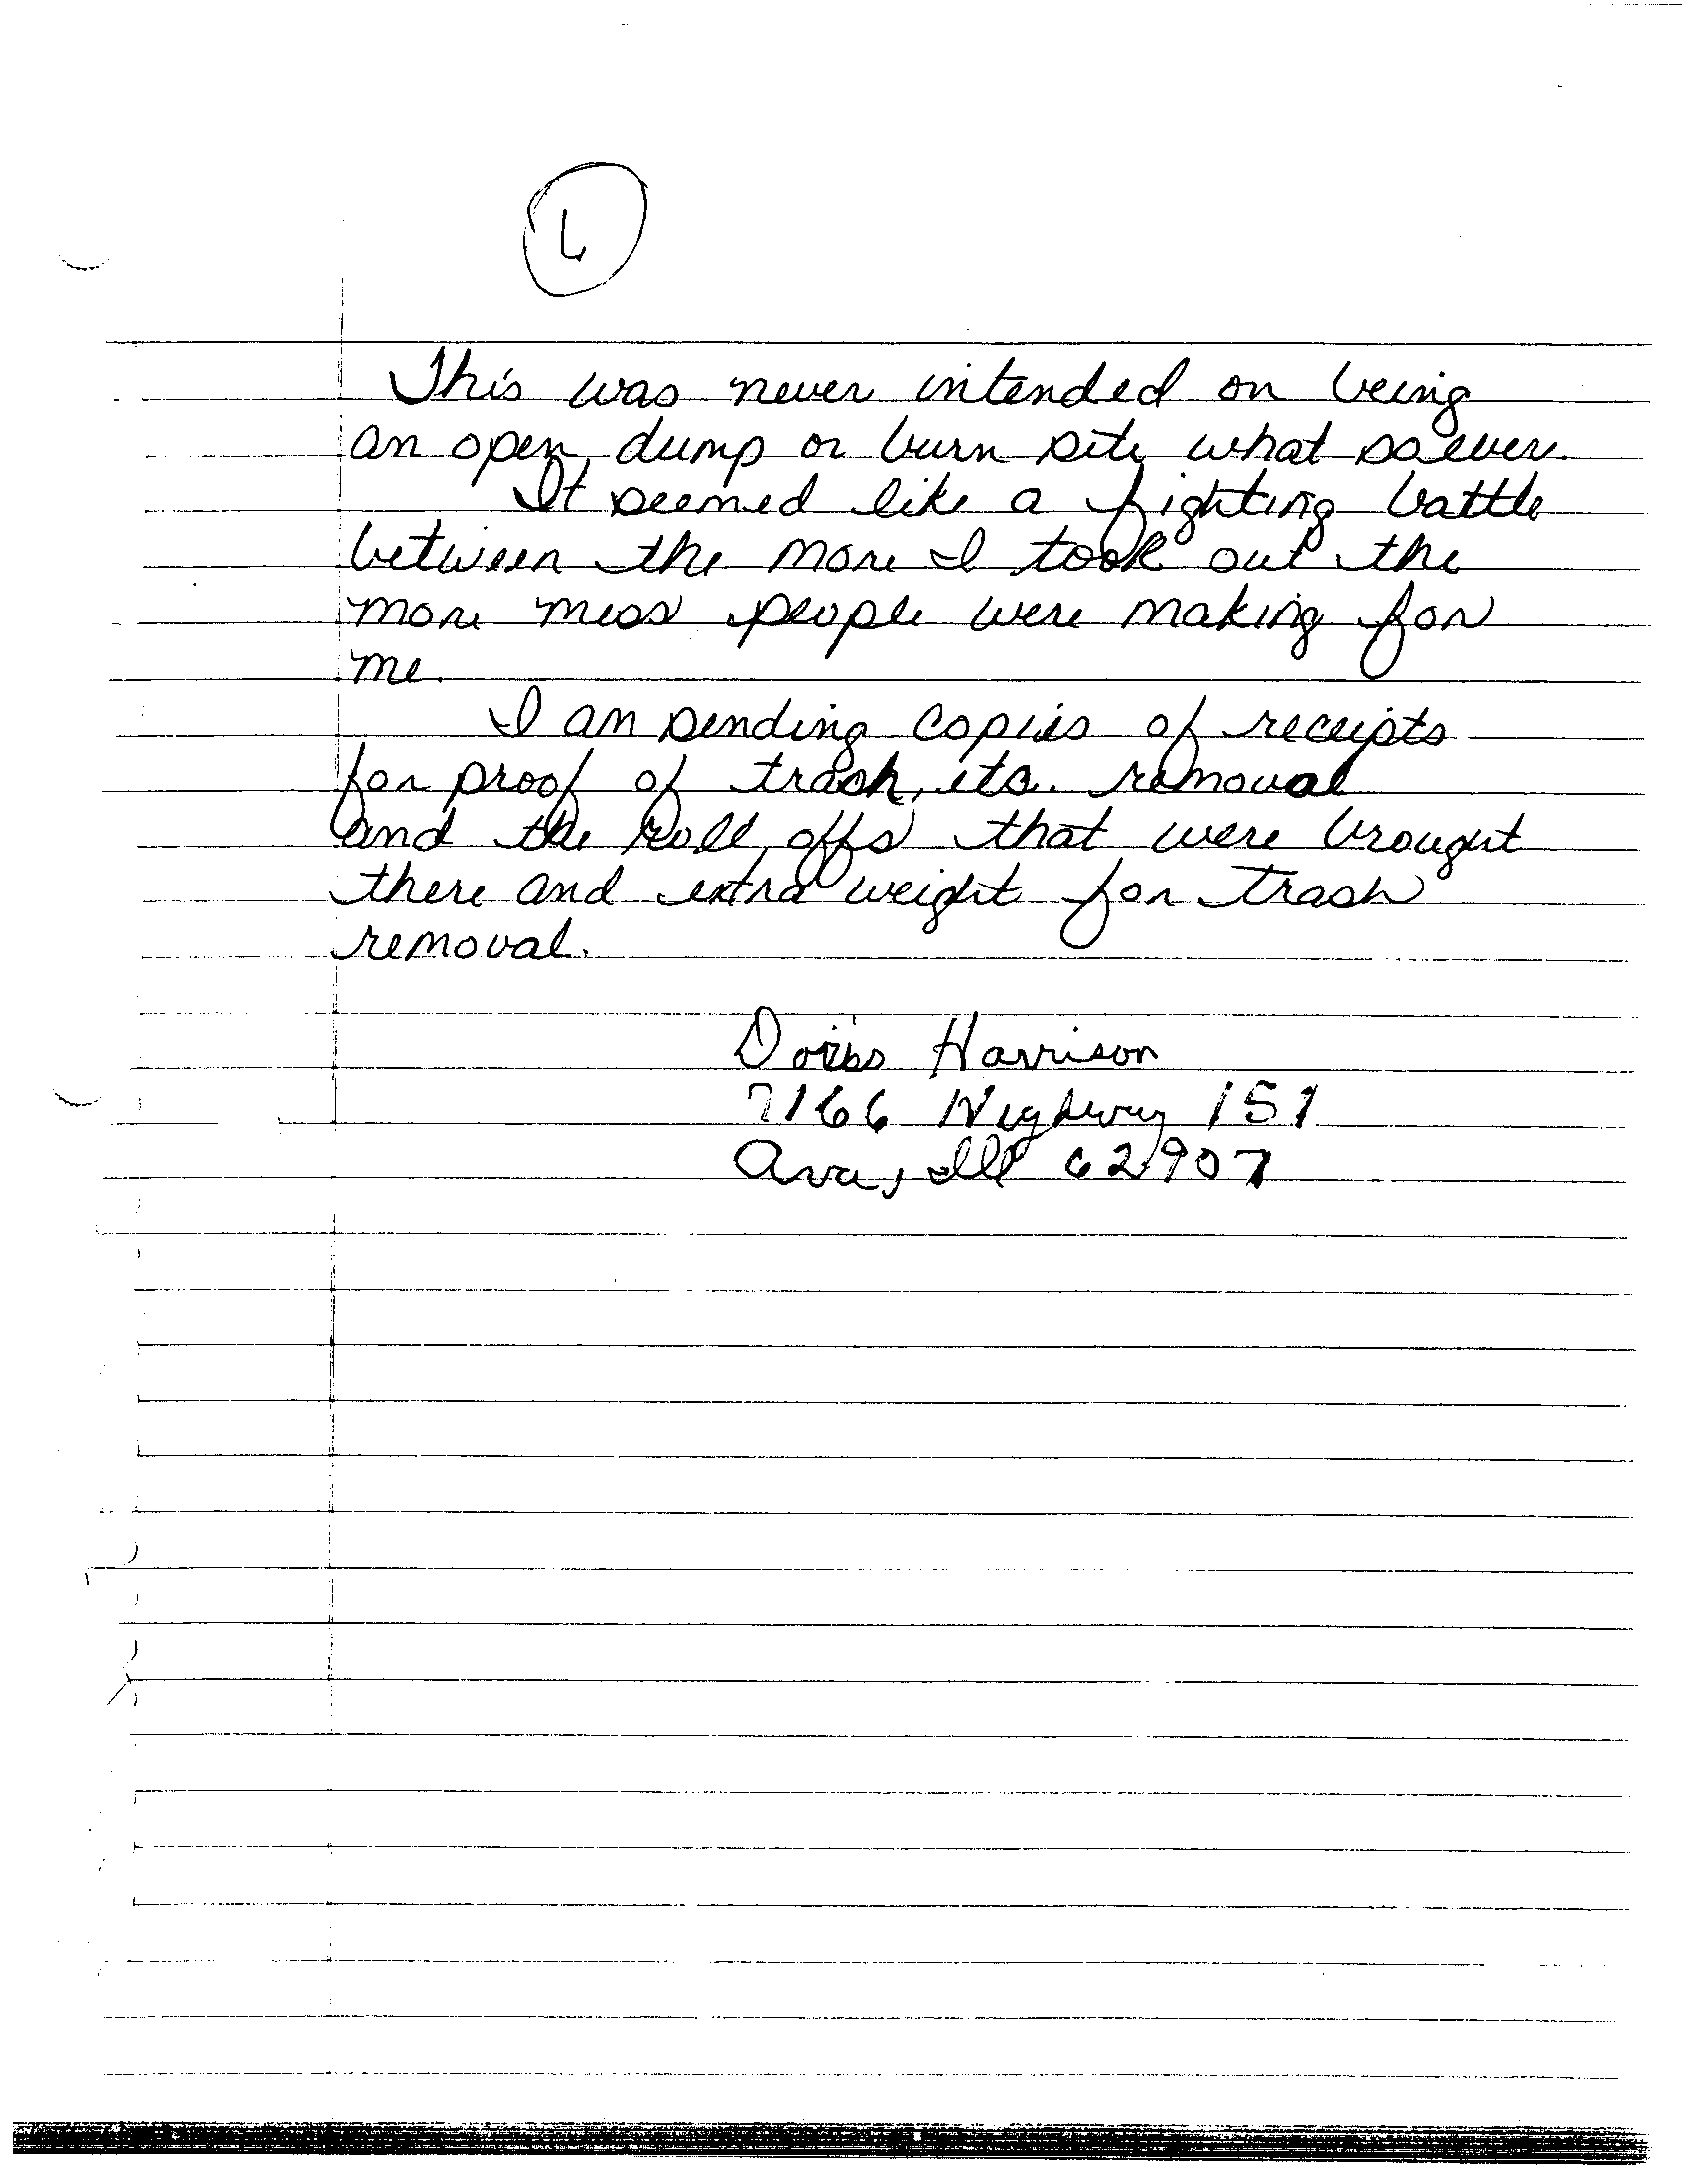 6
This was never intended on being
an open dump or burn site what so ever.
It seemed like a fighting battle
between the more I took out the
more mess people were making for
me.
I am sending copies of receipts
for proof of trash, etc. removal
and the roll offs that were brought
there and extra weight for trash
removal.
Harrison
7166 Highway 151
Ava, Ill 62907